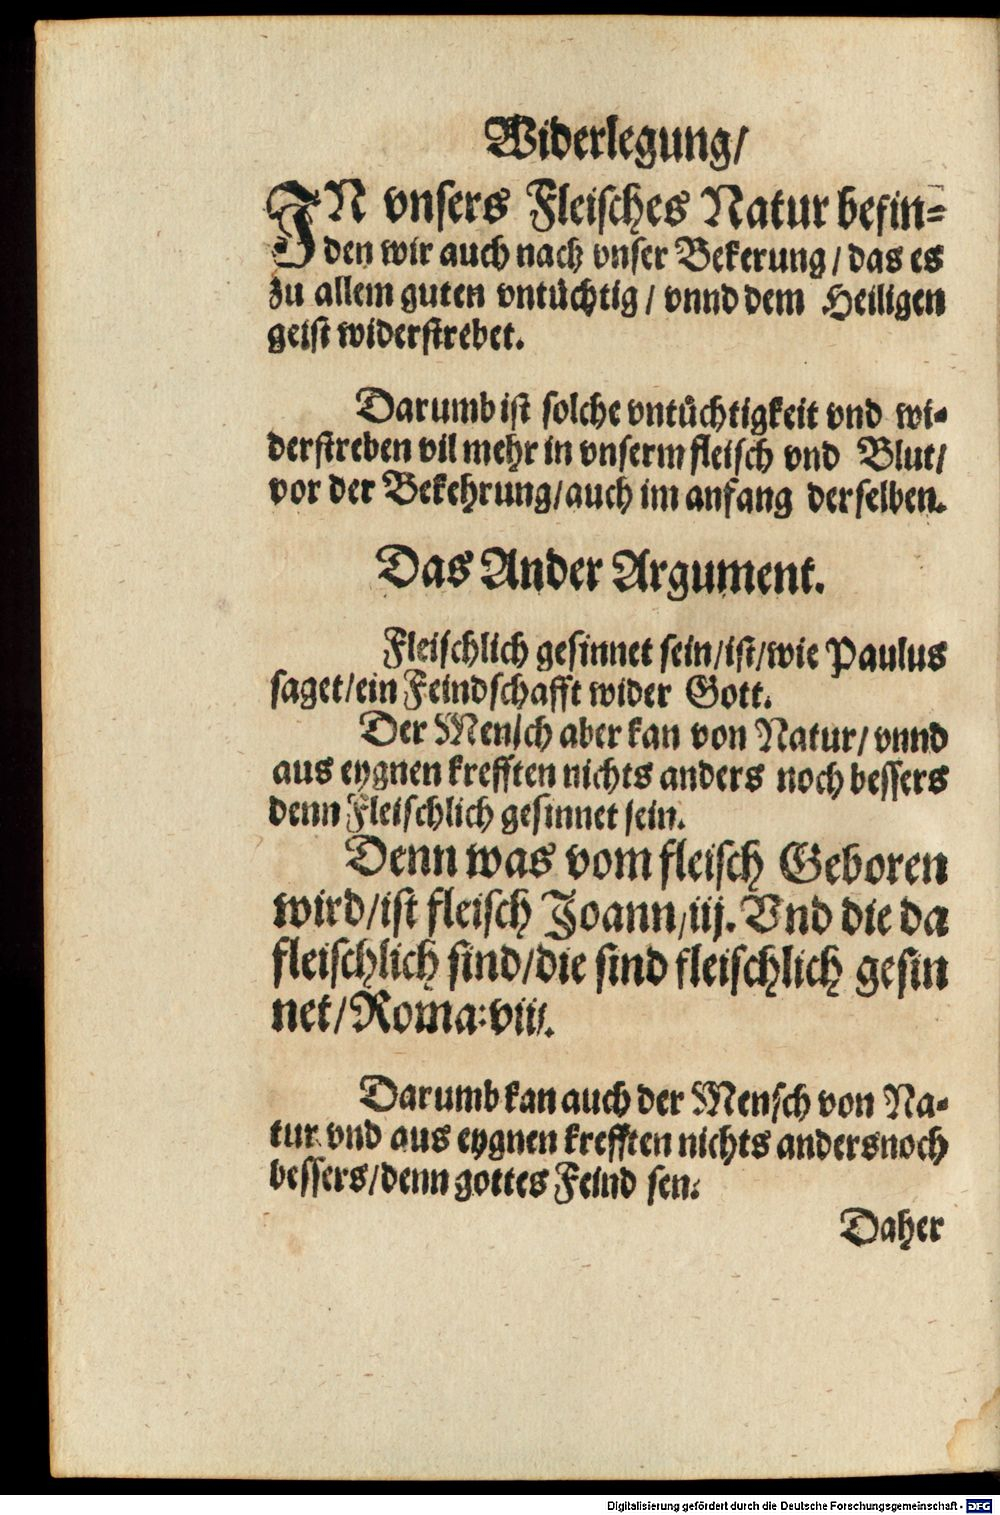 Widerlegung/
IN vnsers Fleisches Natur befin=
den wir auch nach vnser Bekerung/das es
zu allem guten vntüchtig/vnnd dem Heiligen
geist widerstrebet.
Darumb ist solche vntüchtigkeit vnd wi=
derstreben vil mehr in vnserm fleisch vnd Blut/
vor der Bekehrung/auch im anfang derselben.
Das Ander Argument.
Fleischlich gesinnet sein/ist/wie Paulus
saget/ein Feindschafft wider Gott.
Der Mensch aber kan von Natur/vnnd
aus eygnen krefften nichts anders noch bessers
denn Fleischlich gesinnet sein.
Denn was vom fleisch Geboren
wird/ist fleisch Joann/iij. Vnd die da
fleischlich sind/die sind fleischlich gesin
net/Roma:viij.
Darumb kan auch der Mensch von Na=
tur vnd aus eygnen krefften nichts anders noch
bessers/denn gottes Feind sen.
Daher
Digitalisierung gefördert durch die Deutsche Forschungsgemeinschaft - DFG